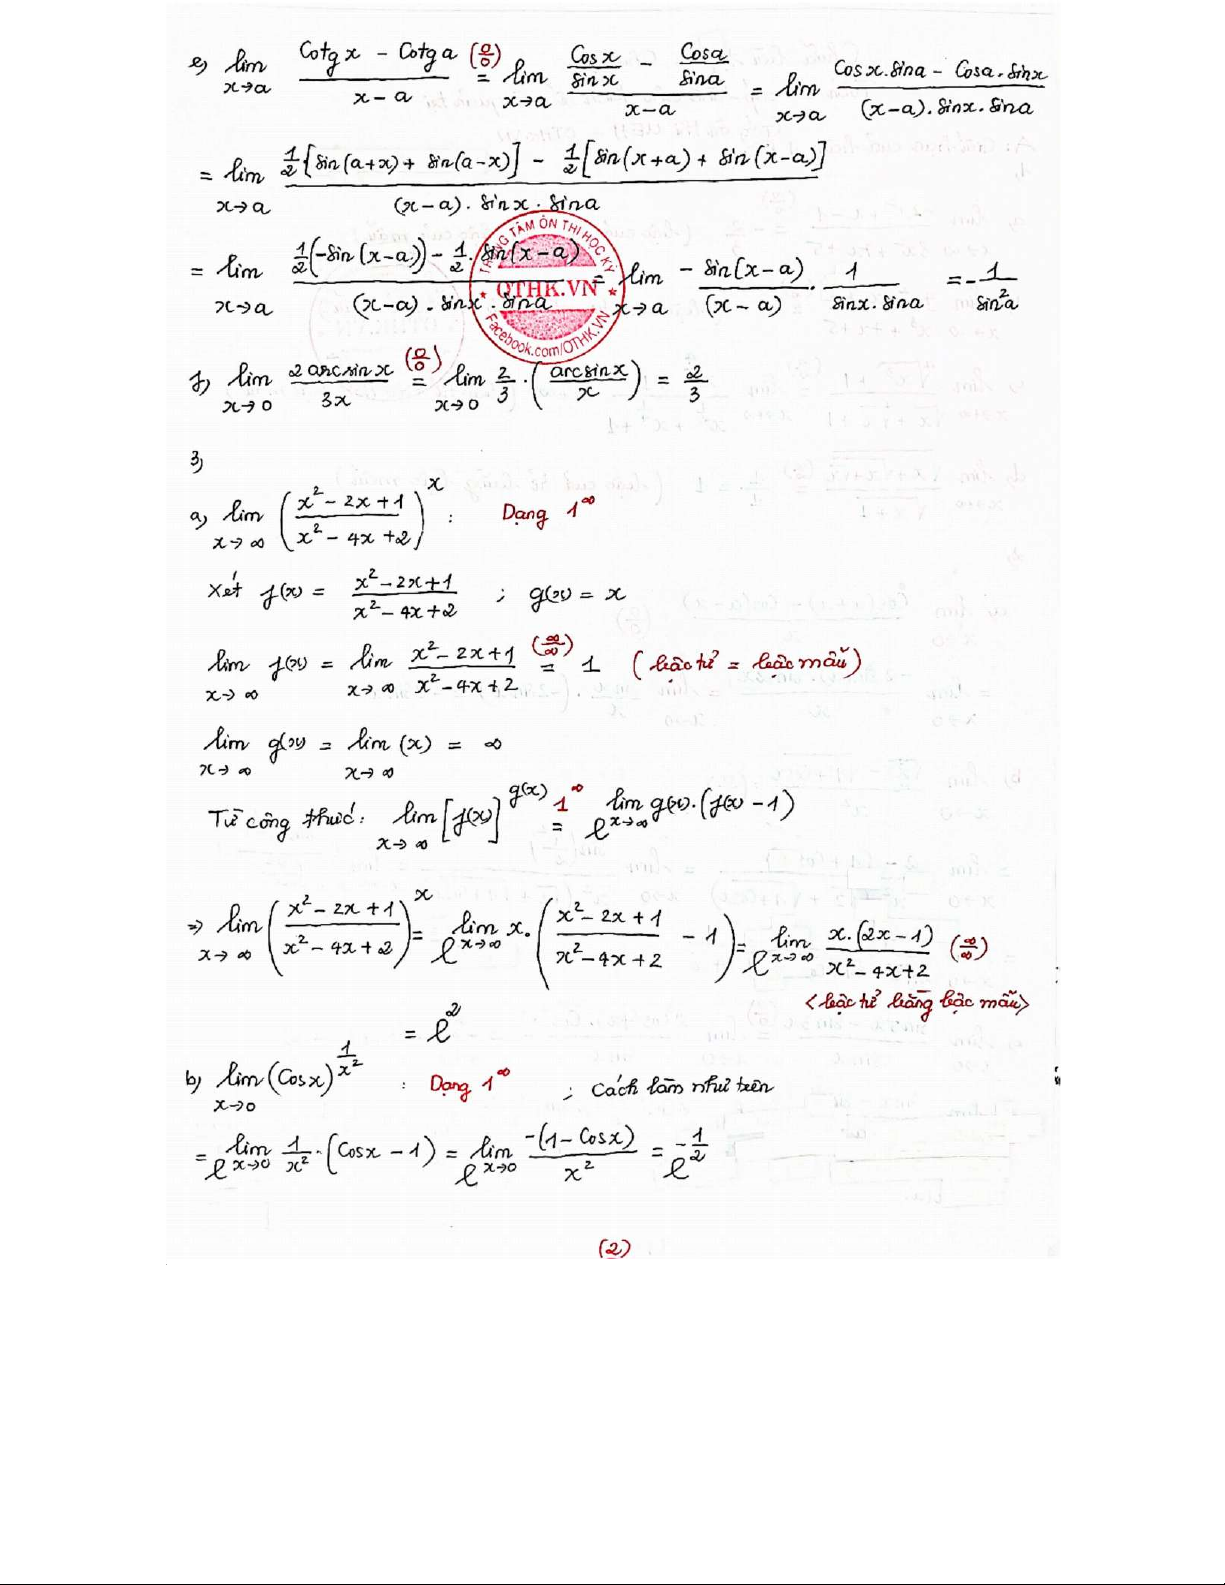 e) lim x→a (Cotg x - Cotg a)/(x - a) (0/0) = lim x→a (Cosx/sinx - Cosa/sina)/(x-a) = lim x→a (Cosx.sina - Cosa.sinx)/((x-a).sinx.sina)
= lim x→a (1/2[sin(a+x) + sin(a-x)] - 1/2[sin(x+a) + sin(x-a)])/((x-a).sinx.sina)
= lim x→a (1/2(-sin(x-a)) - 1/2.sin(x-a))/((x-a).sinx.sina) = lim x→a -sin(x-a)/(x-a) . 1/(sinx.sina) = -1/sin²a
TRUNG TÂM ÔN THI HỌC KỲ
OTHK.VN
Facebook.com/OTHK.VN
f) lim x→0 2arcsinx/3x (0/0) = lim x→0 2/3 . (arcsinx/x) = 2/3
3)
a) lim x→∞ ((x² - 2x + 1)/(x² - 4x + 2))^x : Dạng 1^∞
Xét f(x) = (x² - 2x + 1)/(x² - 4x + 2) ; g(x) = x
lim x→∞ f(x) = lim x→∞ (x² - 2x + 1)/(x² - 4x + 2) (∞/∞) = 1 (bậc tử = bậc mẫu)
lim x→∞ g(x) = lim x→∞ (x) = ∞
Từ công thức: lim x→∞ [f(x)]^g(x) 1^∞ = e^lim x→∞ g(x).(f(x) - 1)
⇒ lim x→∞ ((x² - 2x + 1)/(x² - 4x + 2))^x = e^lim x→∞ x.((x² - 2x + 1)/(x² - 4x + 2) - 1) = e^lim x→∞ x.(2x - 1)/(x² - 4x + 2) (∞/∞)
<bậc tử bằng bậc mẫu>
= e²
b) lim x→0 (Cosx)^(1/x²) : Dạng 1^∞ ; cách làm như trên
= e^lim x→0 1/x² . (Cosx - 1) = e^lim x→0 -(1 - Cosx)/x² = e^(-1/2)
(2)